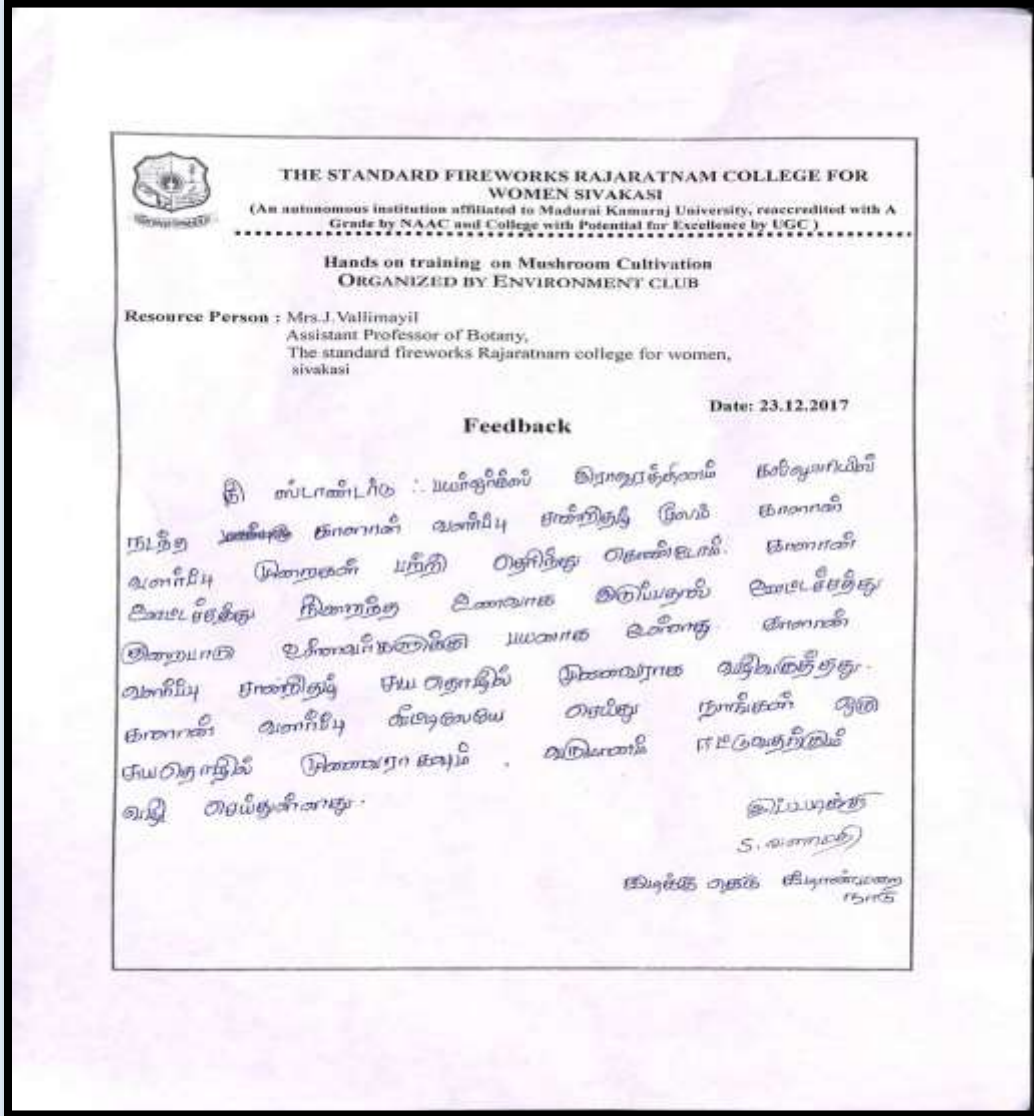 THE STANDARD FIREWORKS RAJARATNAM COLLEGE FOR
WOMEN SIVAKASI
(An autonomous institution affiliated to Madurai Kamaraj University, reaccredited with A
Grade by NAAC and College with Potential for Excellence by UGC )
Hands on training on Mushroom Cultivation
ORGANIZED BY ENVIRONMENT CLUB
Resource Person : Mrs.J.Vallimayil
Assistant Professor of Botany,
The standard fireworks Rajaratnam college for women,
sivakasi
Date: 23.12.2017
Feedback
தி ஸ்டாண்டர்டு ஃபயர்ஒர்க்ஸ் இராஜரத்தினம் கல்லூரியில்
நடந்த காளான் வளர்ப்பு சான்றிதழ் மூலம் காளான்
வளர்ப்பு முறைகள் பற்றி தெரிந்து கொண்டோம். காளான்
ஊட்டச்சத்து நிறைந்த உணவாக இருப்பதால் ஊட்டச்சத்து
குறைபாடு உள்ளவர்களுக்கு பயனாக உள்ளது. காளான்
வளர்ப்பு சான்றிதழ் சுய தொழில் முனைவராக வழிவகுத்தது.
காளான் வளர்ப்பு வீட்டிலேயே செய்து நாங்கள் ஒரு
சுயதொழில் முனைவராகவும், வருமானம் ஈட்டுவதற்கும்
வழி செய்துள்ளது.
இப்படிக்கு
S. வளர்மதி
கிழக்கு தெரு